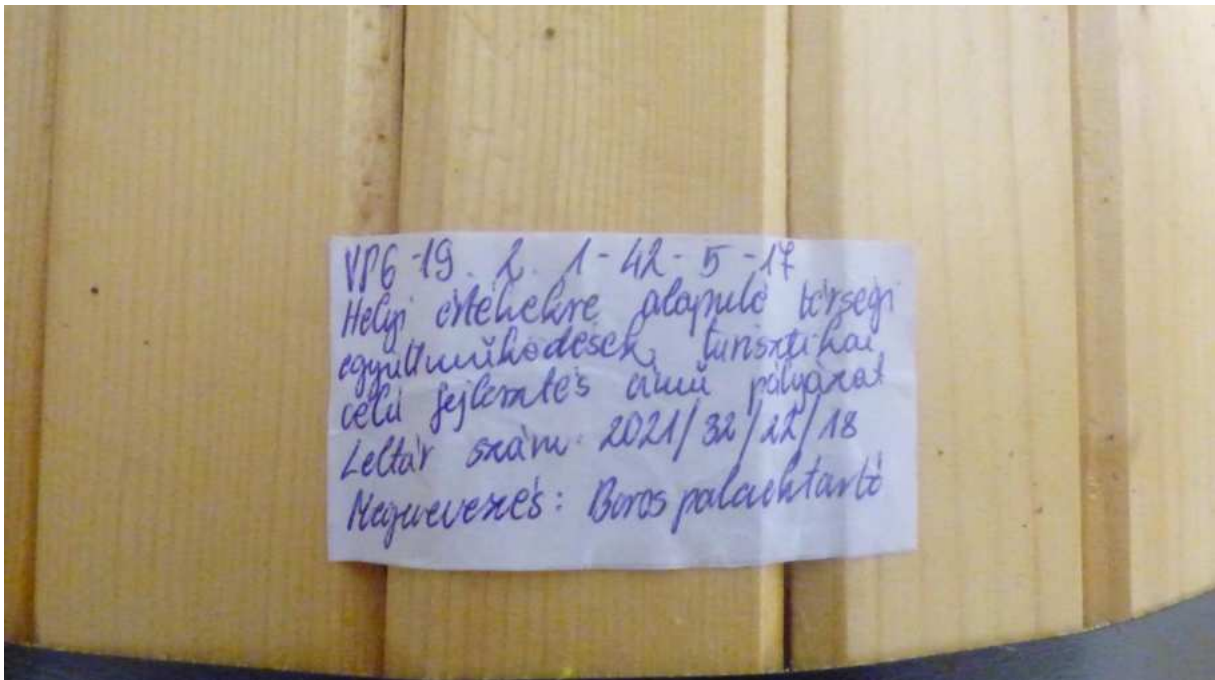 VP6-19. 2. 1-42-5-17
Helyi értékekre alapuló térségi
együttműködések, turisztikai
célú fejlesztés című pályázat
Leltár szám: 2021/32/22/18
Megnevezés: Boros palacktartó